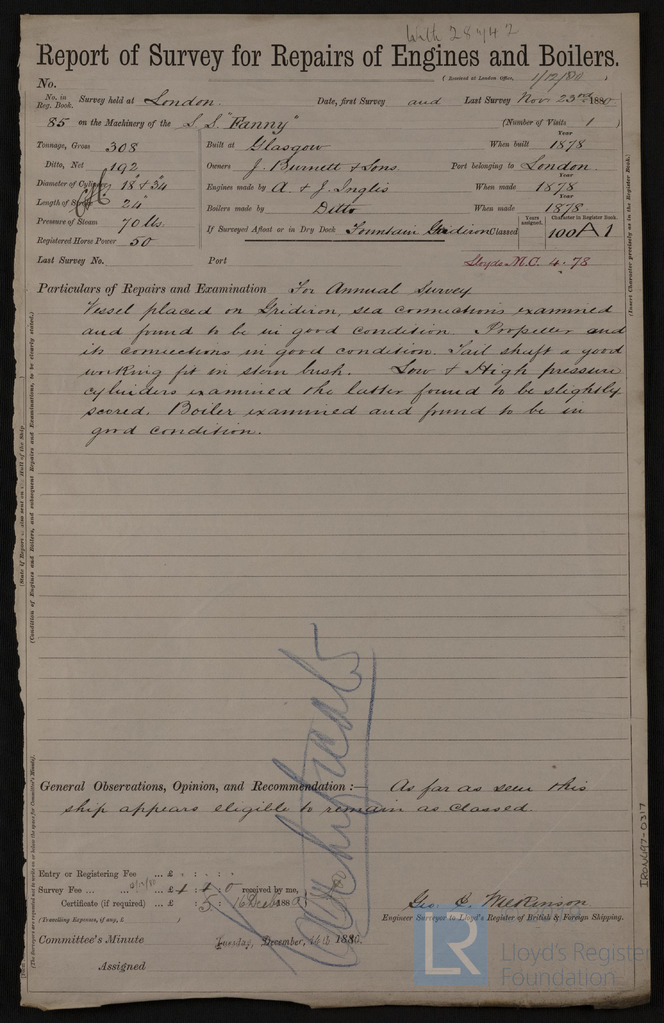 With 28942
Report of Survey for Repairs of Engines and Boilers.
(Received at London Office, 1/12/80 )
No.
No. in Reg. Book. Survey held at London. Date, first Survey and Last Survey Nov 23rd 1880
85 on the Machinery of the S.S. "Fanny" (Number of Visits 1 )
Tonnage, Gross 308 Built at Glasgow When built 1878
Ditto, Net 192 Owners J. Burnett & Sons. Port belonging to London
Diameter of Cylinders 18" & 34 Engines made by A. & J. Inglis When made 1878
Length of Stroke 24" Boilers made by Ditto When made 1878
Pressure of Steam 70 lbs. If Surveyed Afloat or in Dry Dock Fountain Gridiron Classed Years assigned. Character in Register Book. 100 A 1
Registered Horse Power 50
Last Survey No. Port Lloyds M.C. 4.78
Particulars of Repairs and Examination For Annual Survey
Vessel placed on Gridiron, sea connections examined
and found to be in good condition. Propeller and
its connections in good condition. Tail shaft a good
working fit in stern bush. Low & High pressure
cylinders examined the latter found to be slightly
scored. Boiler examined and found to be in
good condition.
General Observations, Opinion, and Recommendation :— As far as seen this
ship appears eligible to remain as Classed.
Entry or Registering Fee ... £ : :
Survey Fee ... £ 1 : 1 : 0 received by me,
Certificate (if required) ... £ : 5 : 16 Dec 1880
(Travelling Expenses, if any, £ )
Geo. C. Wilkinson
Engineer Surveyor to Lloyd's Register of British & Foreign Shipping.
Committee's Minute Tuesday, December, 14th 1880.
Assigned
IRON697-0317
LR Lloyd's Register
Foundation